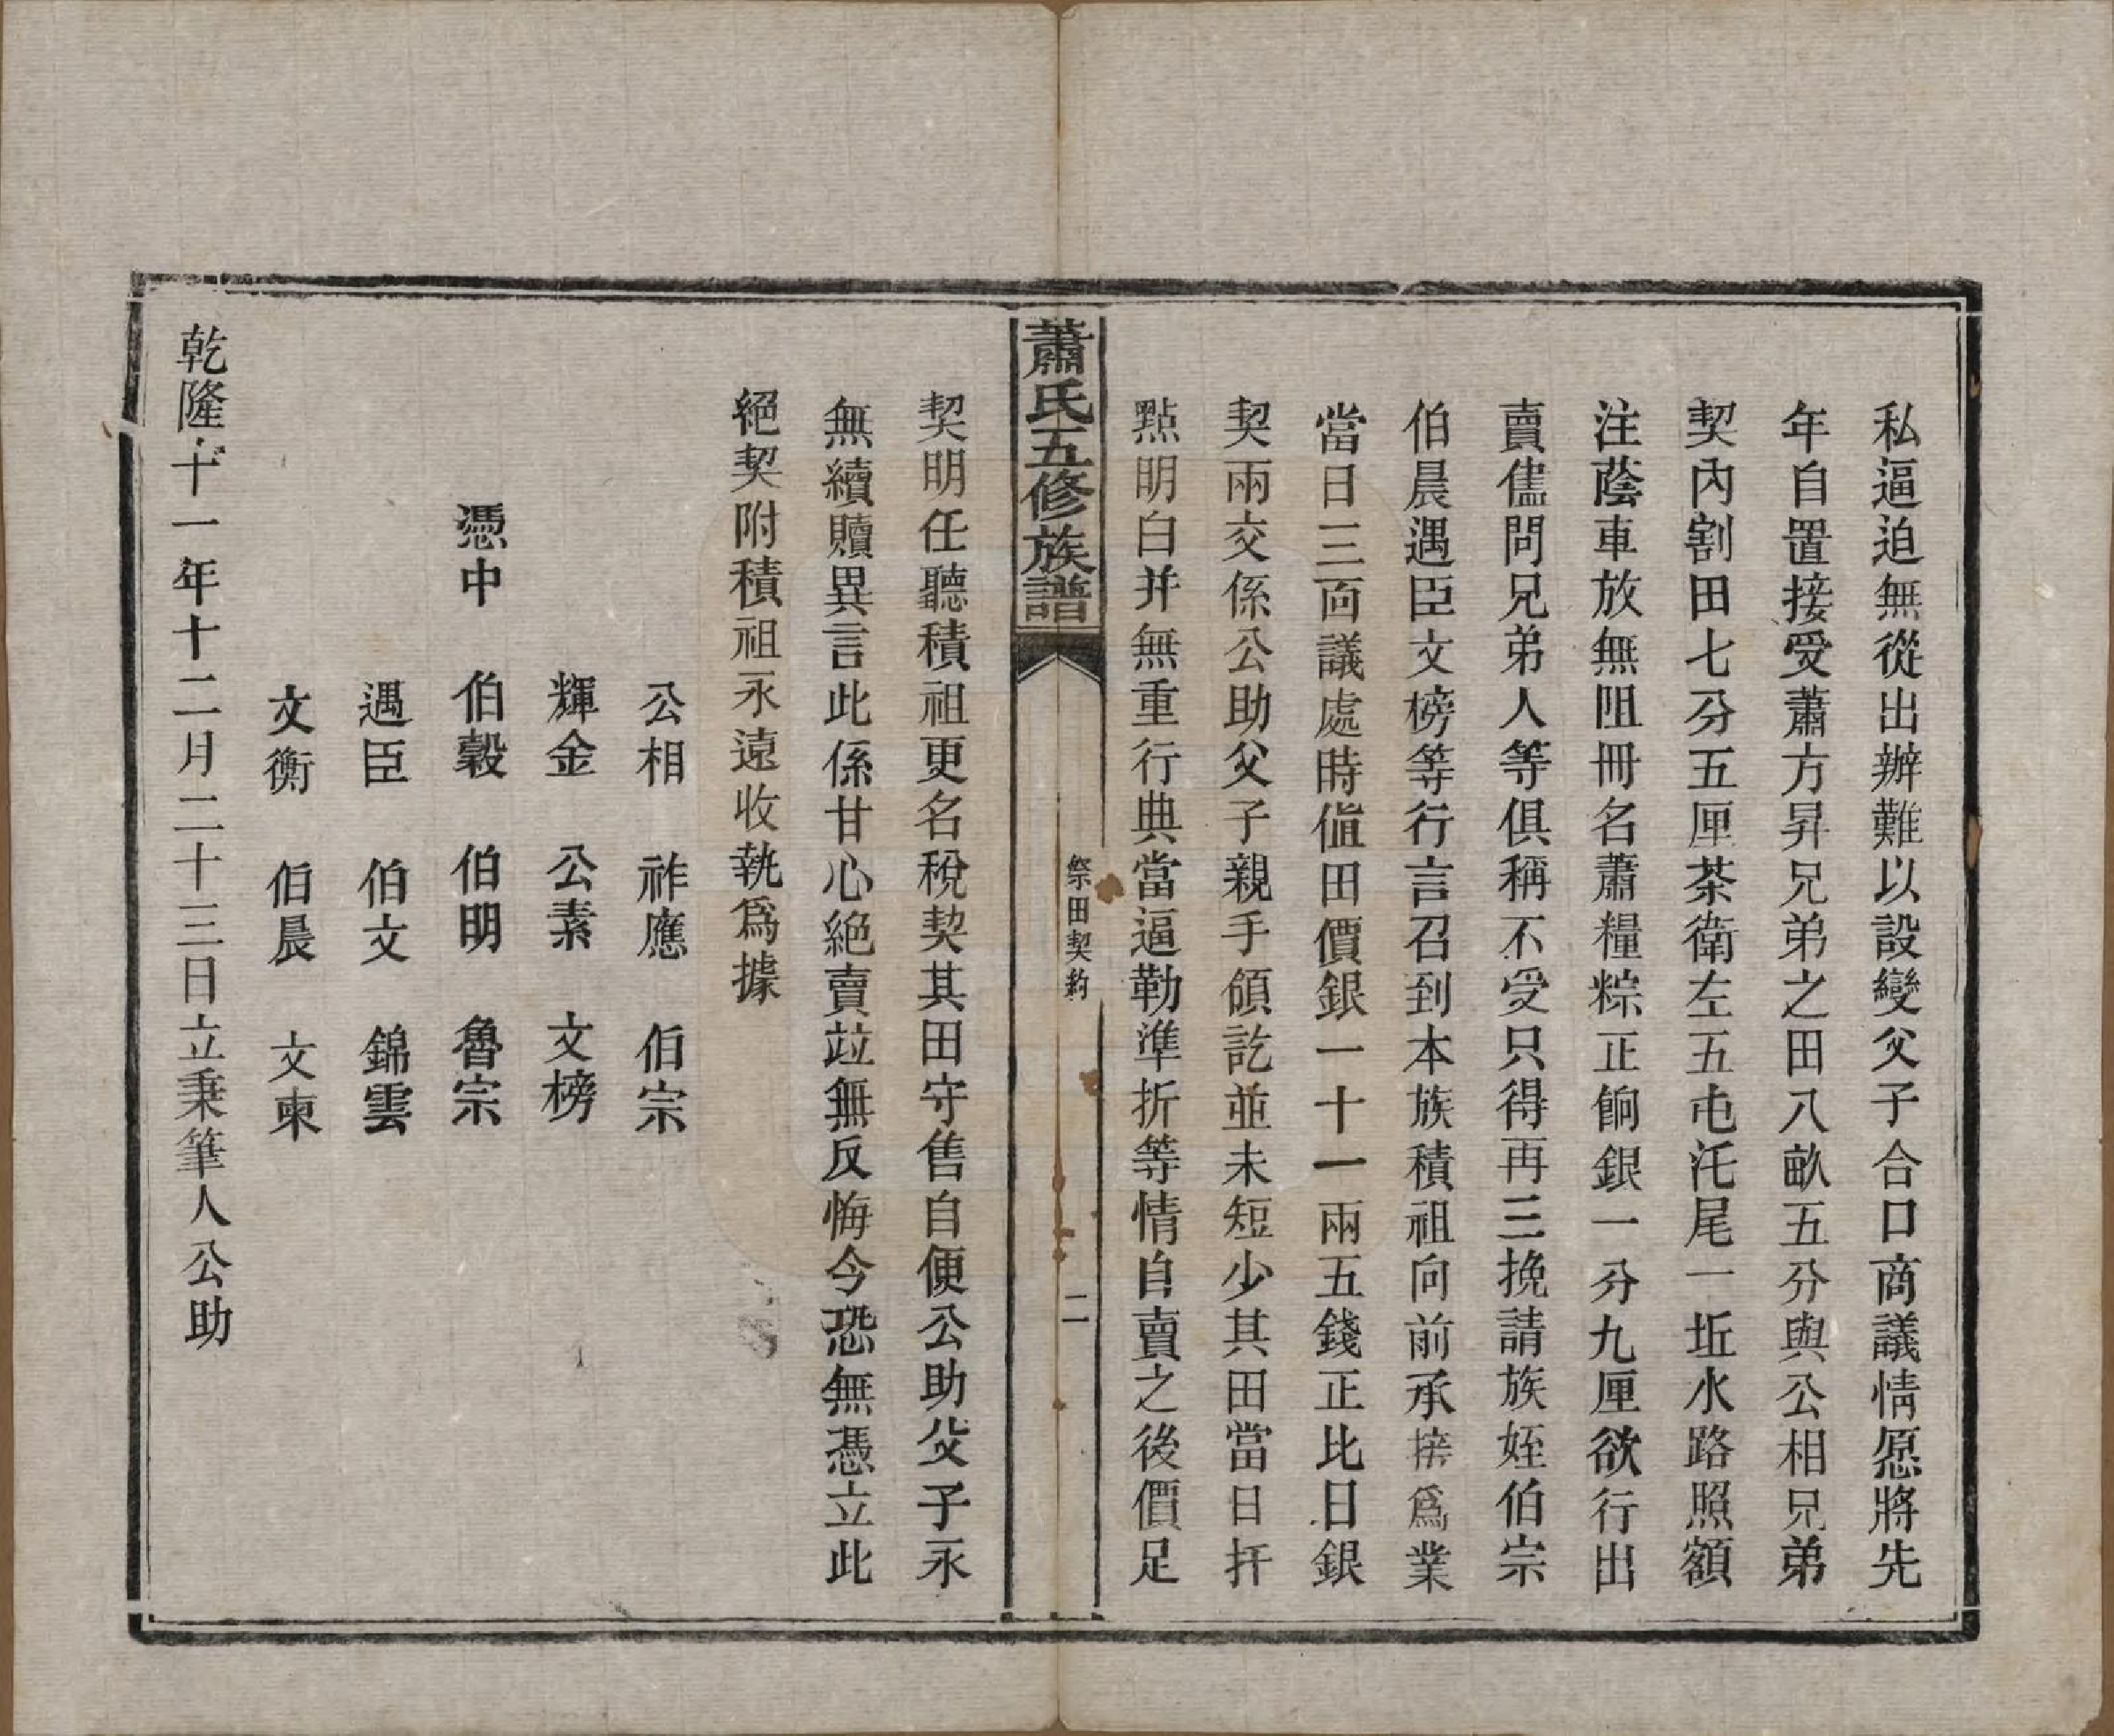 私逼迫無從出辦難以設變父子合口商議情愿將先
年自置接受蕭方昇兄弟之田八畝五分與公相兄弟
契內割田七分五厘茶衛左五屯汑尾一坵水路照額
注蔭車放無阻冊名蕭糧粽正餉銀一分九厘欲行出
賣儘問兄弟人等俱稱不受只得再三挽請族姪伯宗
伯晨遇臣文榜等行言召到本族積祖向前承接爲業
當日三面議處時值田價銀一十一兩五錢正比日銀
契兩交係公助父子親手領訖並未短少其田當日扦
點明白并無重行典當逼勒準折等情自賣之後價足
蕭氏五修族譜
祭田契約
二
契明任聽積祖更名稅契其田守售自便公助父子永
無續贖異言此係甘心絕賣竝無反悔今恐無憑立此
絕契附積祖永遠收執爲據
公相 祚應 伯宗
輝金 公素 文榜
憑中 伯穀 伯明 魯宗
遇臣 伯文 錦雲
文衡 伯晨 文柬
乾隆十一年十二月二十三日立秉筆人公助